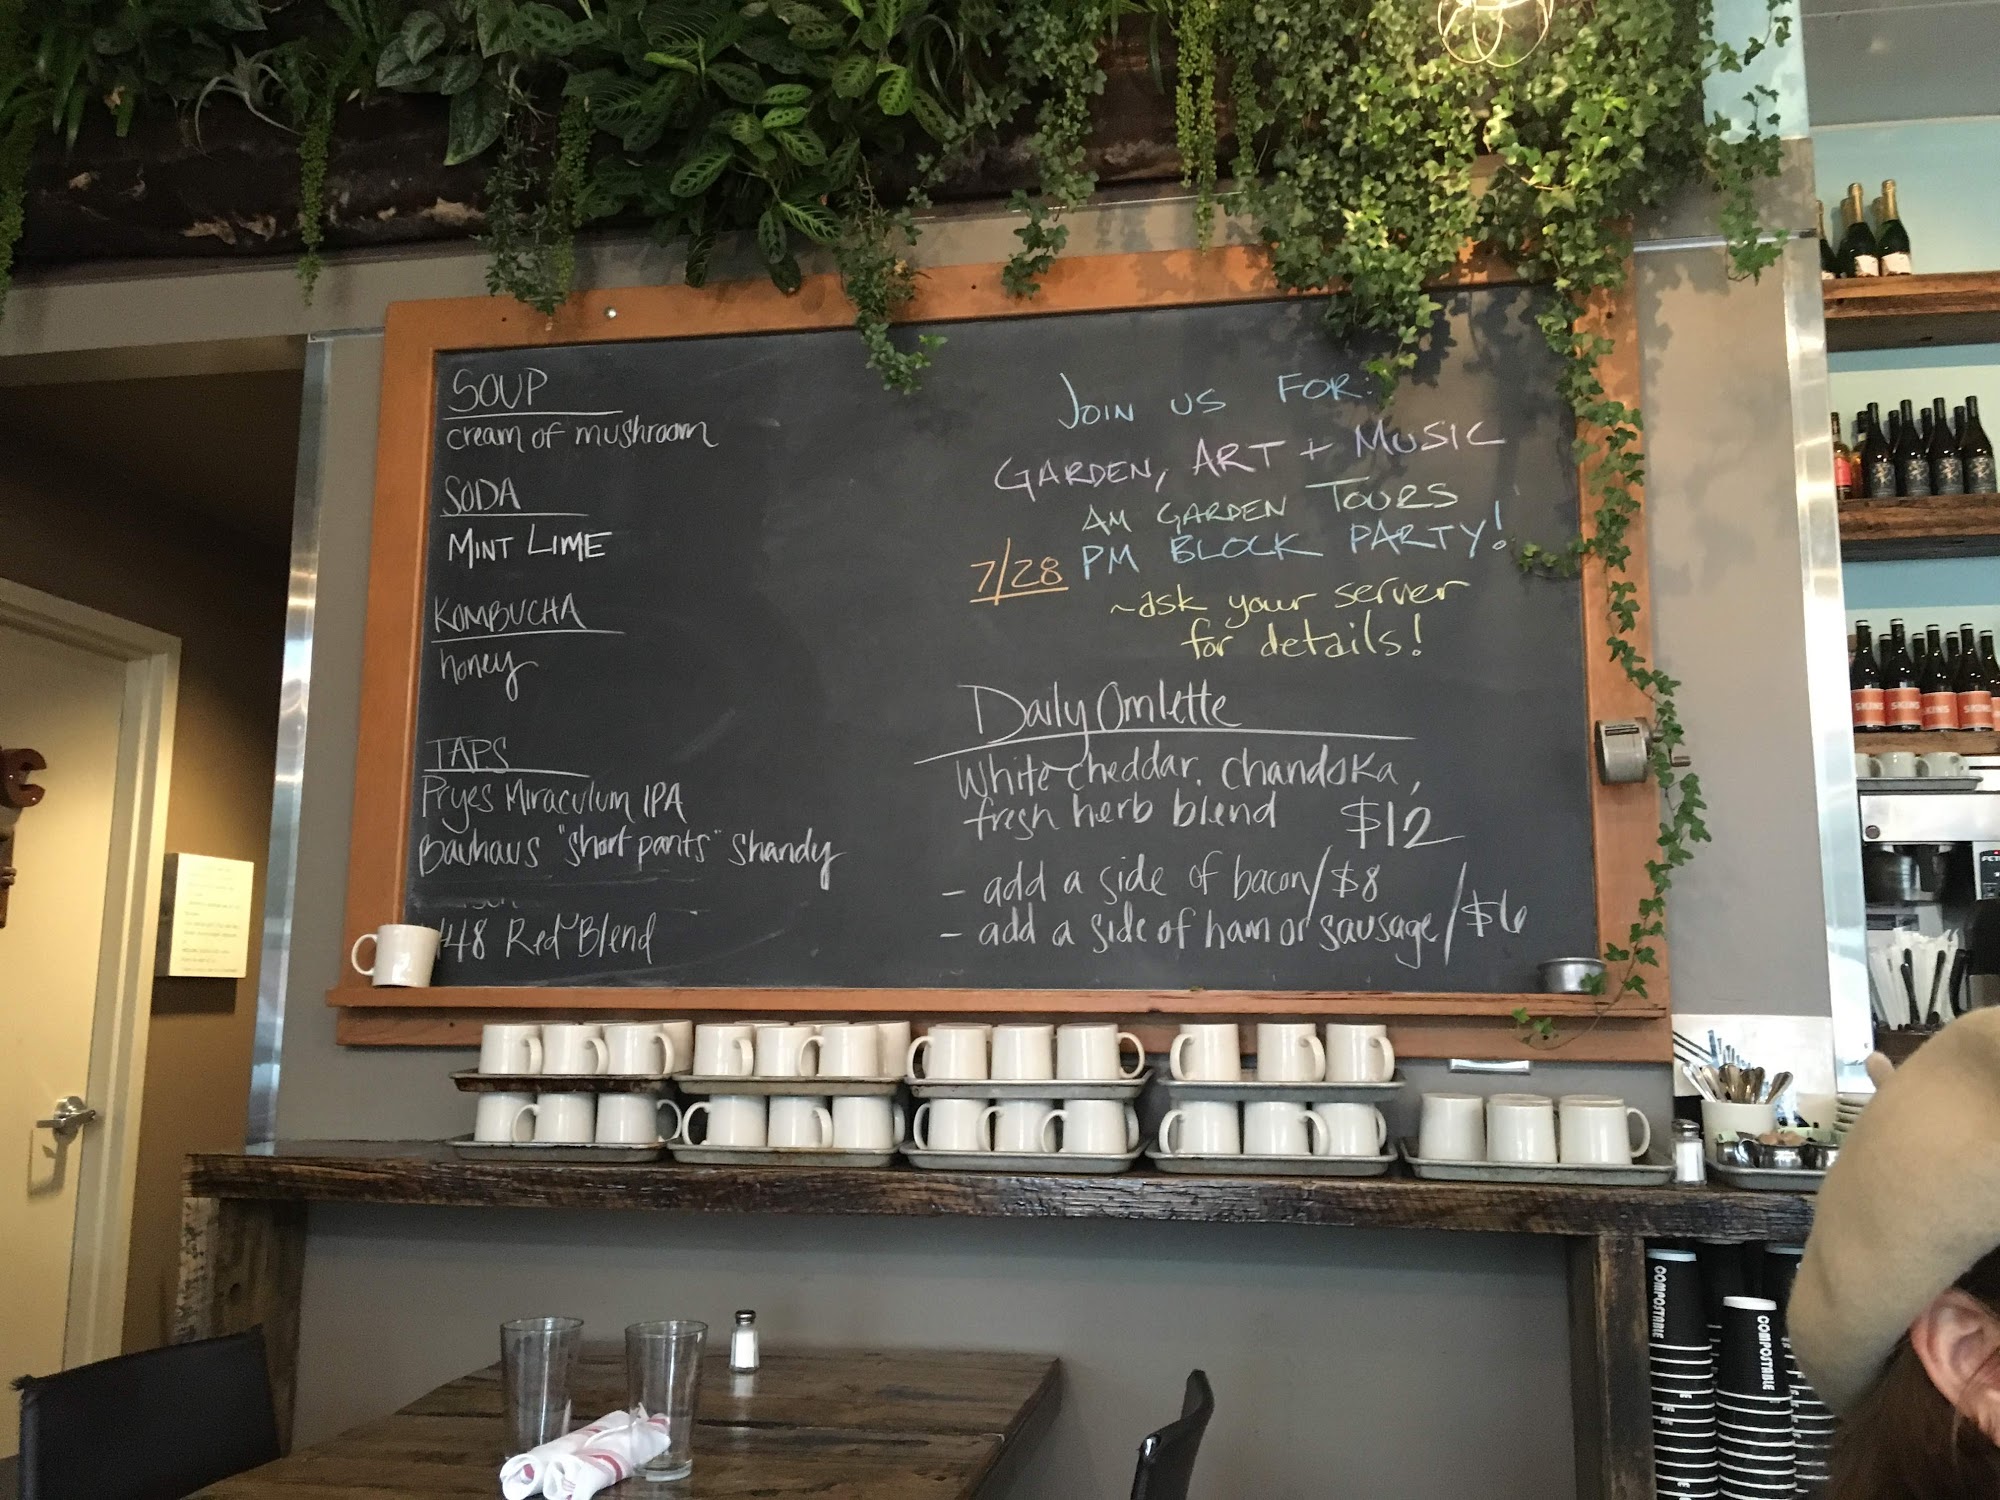 SOUP
cream of mushroom
SODA
MINT LIME
KOMBUCHA
honey
TAPS
Pryes Miraculum IPA
Bauhaus "Short pants" Shandy
Red Blend
JOIN US FOR:
GARDEN, ART + MUSIC
AM GARDEN TOURS
7/28 PM BLOCK PARTY!
~ask your server
for details!
Daily Omlette
White cheddar, chandoka,
fresh herb blend $12
- add a side of bacon/$8
- add a side of ham or sausage/$6
SKINS
SKINS
SKINS
COMPOSTABLE
COMPOSTABLE